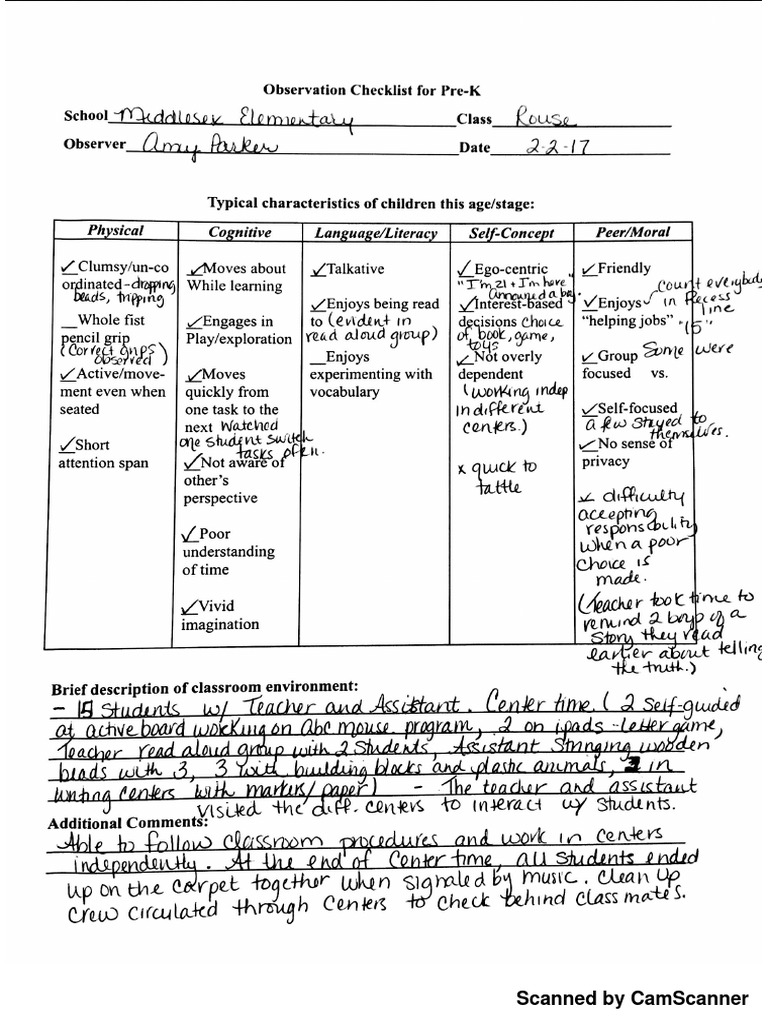 Observation Checklist for Pre-K
School Middlesex Elementary Class Rouse
Observer Amy Parker Date 2-2-17
Typical characteristics of children this age/stage:
Physical Cognitive Language/Literacy Self-Concept Peer/Moral
✓ Clumsy/un-co
ordinated - dropping
beads, tripping
__ Whole fist
pencil grip
(Correct grips
observed)
✓ Active/move-
ment even when
seated
✓ Short
attention span
✓ Moves about
While learning
✓ Engages in
Play/exploration
✓ Moves
quickly from
one task to the
next Watched
one student switch
tasks often.
✓ Not aware of
other's
perspective
✓ Poor
understanding
of time
✓ Vivid
imagination
✓ Talkative
✓ Enjoys being read
to (evident in
read aloud group)
__ Enjoys
experimenting with
vocabulary
✓ Ego-centric
"I'm 21 + I'm here"
Announced a boy
✓ Interest-based
decisions choice
of book, game,
toys
✓ Not overly
dependent
(working indep
in different
centers.)
x quick to
tattle
✓ Friendly
✓ Enjoys ✓ count everybody
in Recess
line
"helping jobs" "15"
✓ Group Some were
focused vs.
✓ Self-focused
a few stayed to
themselves.
✓ No sense of
privacy
x difficulty
accepting
responsibility
when a poor
choice is
made.
(Teacher took time to
remind 2 boys of a
Story they read
earlier about telling
the truth.)
Brief description of classroom environment:
- 15 Students w/ Teacher and Assistant. Center time. (2 Self-guided
at activeboard working on Abc mouse program, 2 on ipads - letter game,
Teacher read aloud group with 2 Students, Assistant Stringing wooden
beads with 3, 3 with building blocks and plastic animals, in
writing centers with markers/paper) - The teacher and assistant
visited the diff. centers to interact w/ Students.
Additional Comments:
Able to follow classroom procedures and work in centers
independently. At the end of Center time, all Students ended
up on the carpet together when signaled by music. Clean up
crew circulated through centers to check behind classmates.
Scanned by CamScanner